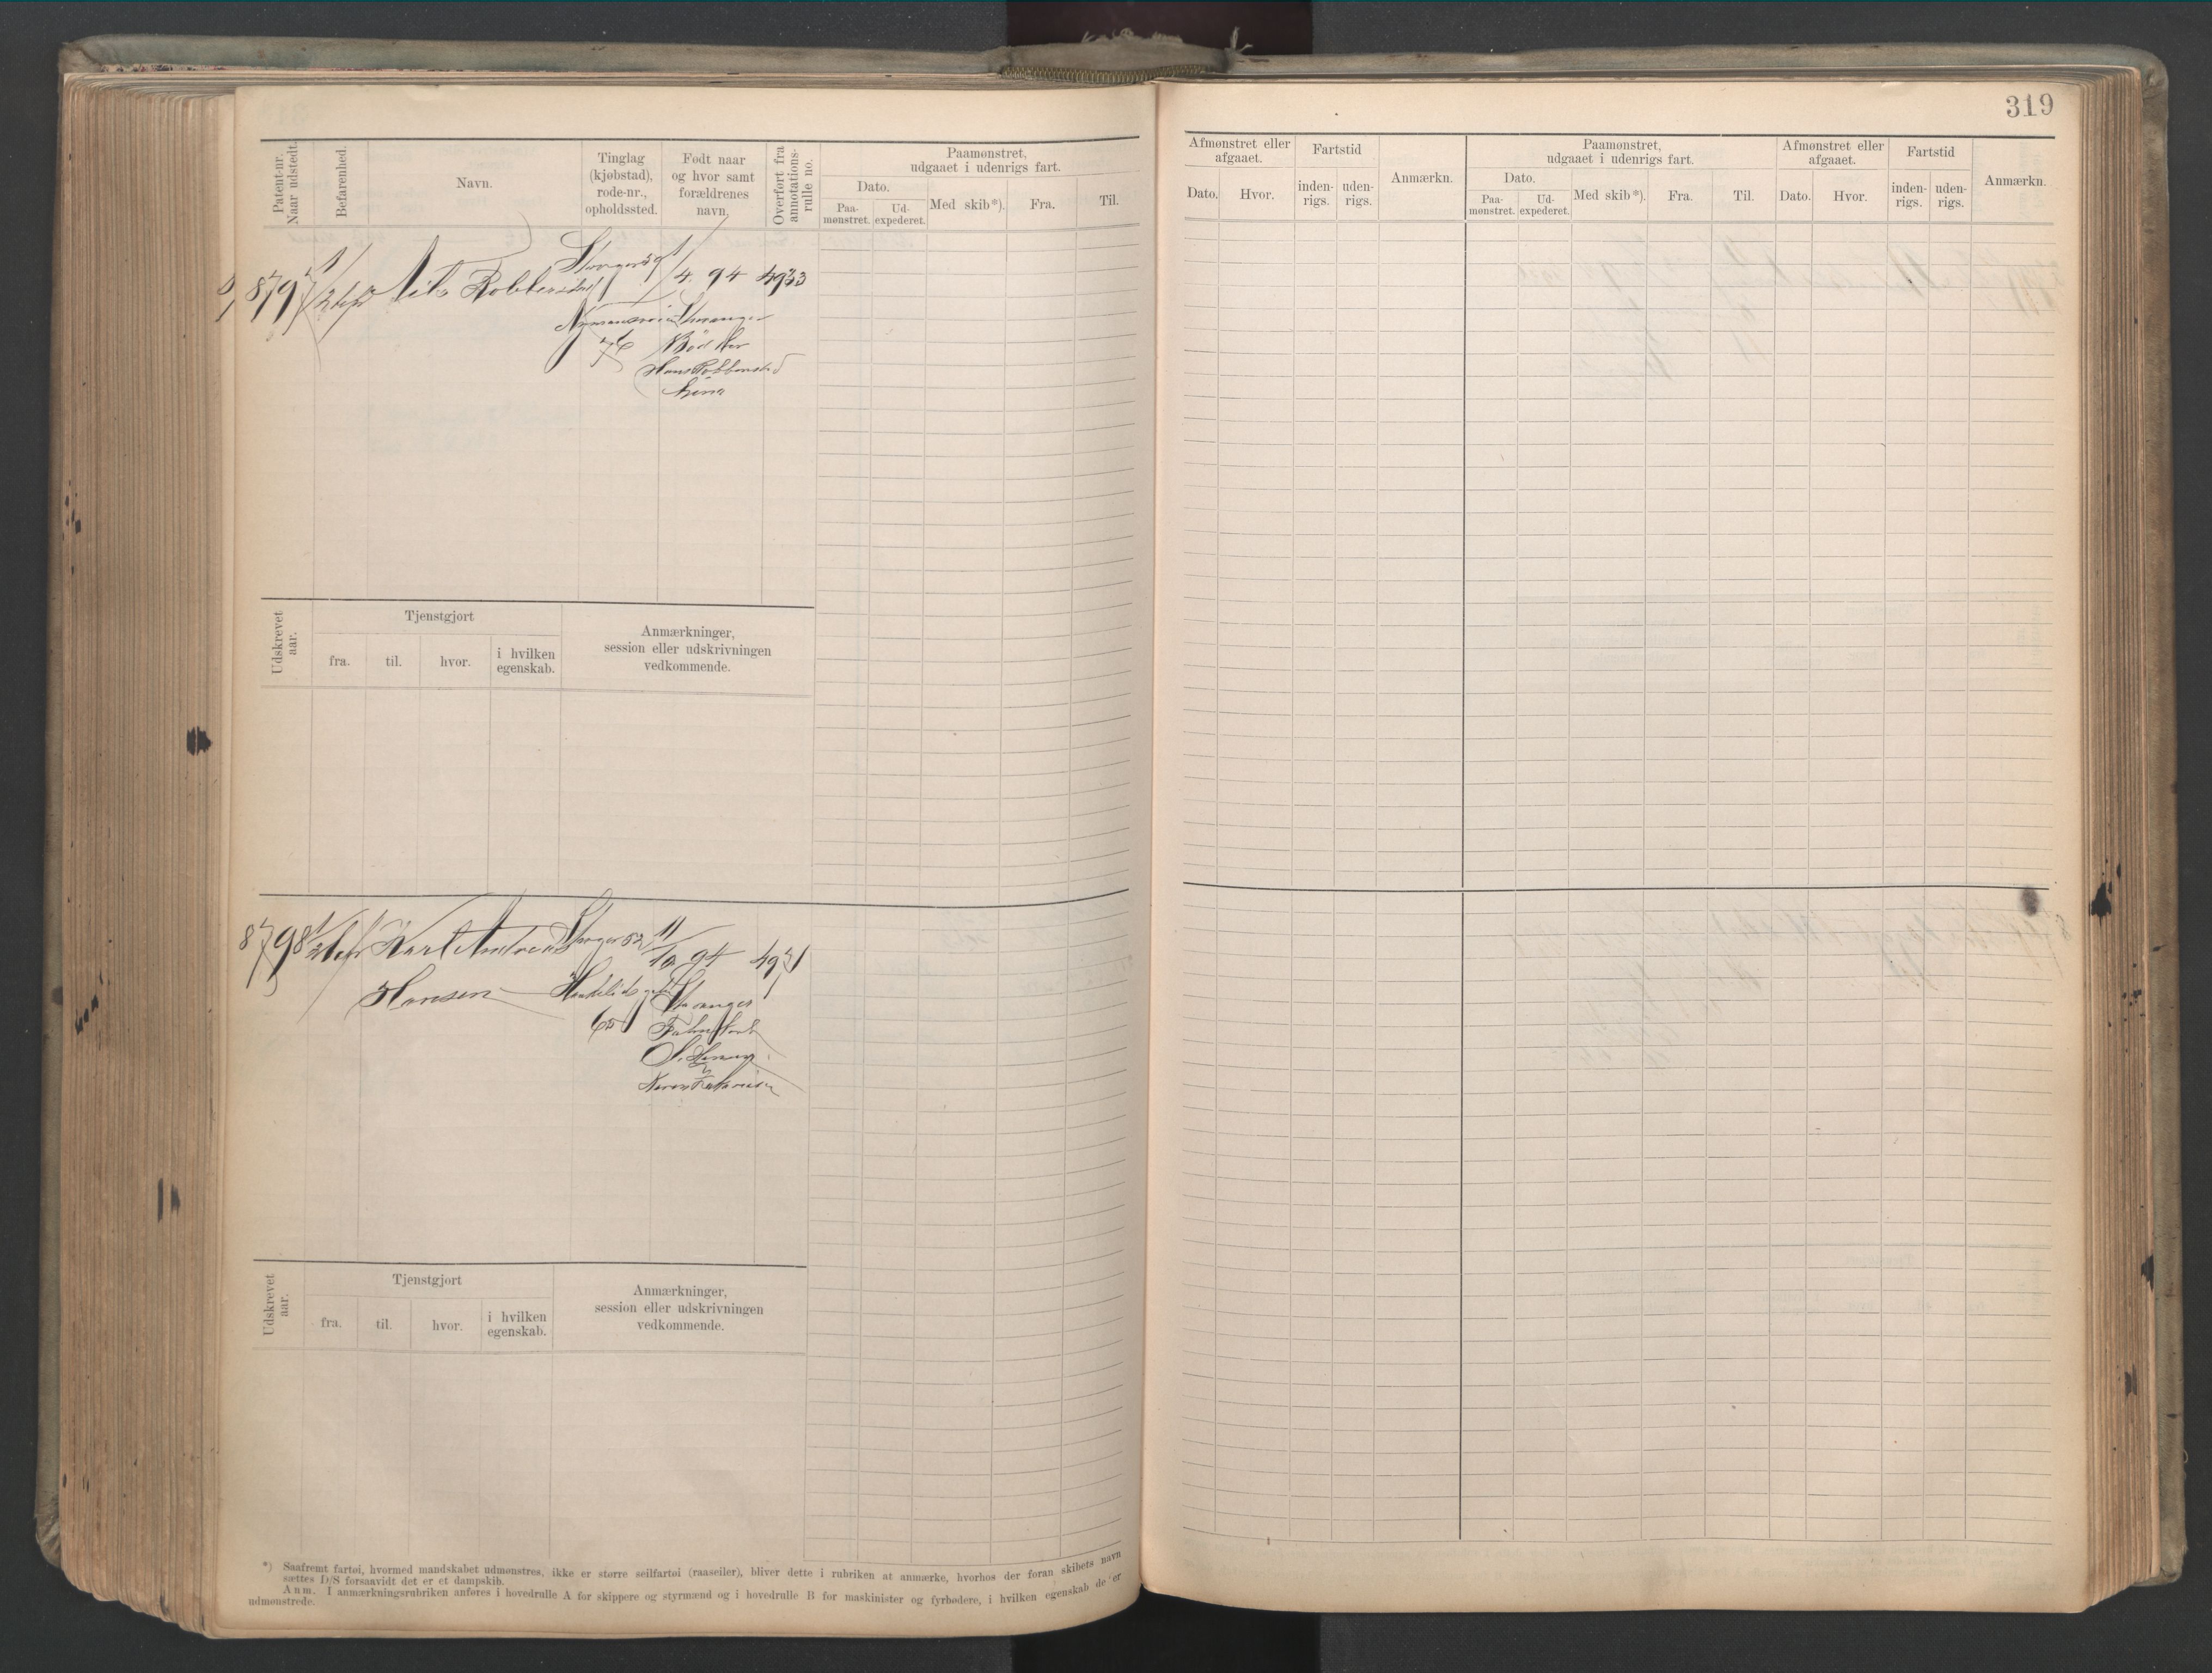 319
Patent-nr.
Naar udstedt.
Befarenhed.
Navn.
Tinglag
(kjøbstad),
rode-nr.,
opholdssted.
Født naar
og hvor samt
forældrenes
navn.
Overført fra
annotations-
rulle no.
Paamønstret,
udgaaet i udenrigs fart.
Dato.
Paa-
mønstret.
Ud-
expederet.
Med skib*).
Fra.
Til.
Afmønstret eller
afgaaet.
Dato.
Hvor.
Fartstid
inden-
rigs.
uden-
rigs.
Anmærkn.
Paamønstret,
udgaaet i udenrigs fart.
Dato.
Paa-
mønstret.
Ud-
expederet.
Med skib*).
Fra.
Til.
Afmønstret eller
afgaaet.
Dato.
Hvor.
Fartstid
inden-
rigs.
uden-
rigs.
Anmærkn.
8797 1/2 bef Nils Robberstad
4. 94 4933
Stavanger
76 Bødker
Hans Robberstad
Udskrevet
aar.
Tjenstgjort
fra.
til.
hvor.
i hvilken
egenskab.
Anmærkninger,
session eller udskrivningen
vedkommende.
8798 1/2 bef Karl Andreas
Hansen
11/10 94 4971
Stavanger
65
Udskrevet
aar.
Tjenstgjort
fra.
til.
hvor.
i hvilken
egenskab.
Anmærkninger,
session eller udskrivningen
vedkommende.
*) Saafremt fartøi, hvormed mandskabet udmønstres, ikke er større seilfartøi (raaseiler), bliver dette i rubriken at anmærke, hvorhos der foran skibets navn
sættes D/S forsaavidt det er et dampskib.
Anm. I anmærkningsrubriken anføres i hovedrulle A for skippere og styrmænd og i hovedrulle B for maskinister og fyrbødere, i hvilken egenskab de er
udmønstrede.